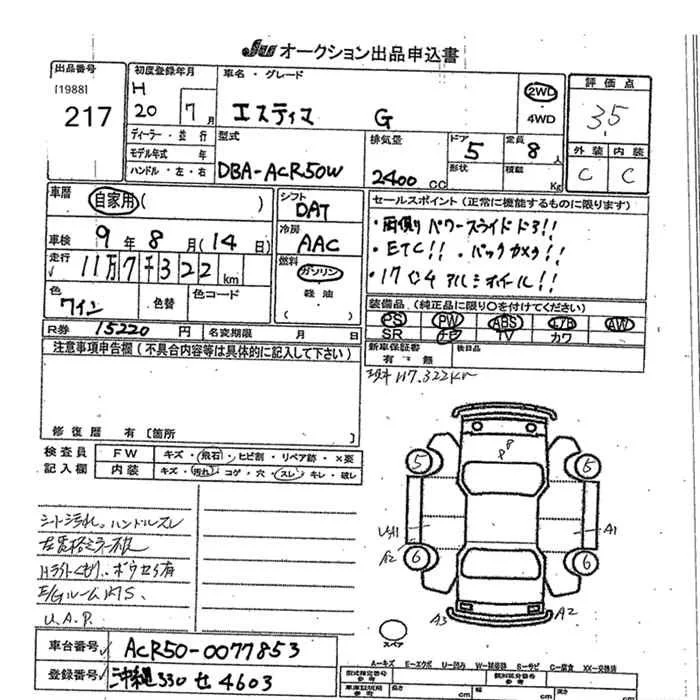 JU オークション出品申込書
出品番号
[1988]
217
初度登録年月
H
20 7月
車名・グレード
エスティマ G
2WD
4WD
評価点
3.5
外装 内装
C C
ディーラー・並行
モデル年式 年
ハンドル・左・右
型式
DBA-ACR50W
排気量
2400cc
ドア
5
形状
定員
8人
積載
Kg
車暦
自家用( )
車検 9年8月(14日)
走行
11万7千322km
色
ワイン
色替
色コード
シフト
DAT
冷房
AAC
燃料
ガソリン
軽油
( )
セールスポイント(正常に機能するものに限ります)
・両側パワースライドドア!!
・ETC!!・バックカメラ!!
・17インチアルミホイール!!
装備品(純正品に限り○を付けてください)
PS PW ABS エアB AW
SR ナビ TV カワ
R券 15220円 名変期限 月 日
新車保証書
有 無
後日品
注意事項申告欄(不具合内容等は具体的に記入して下さい)
修復歴 有〔箇所 〕
117.322km
検査員
記入欄
FW キズ・飛石・ヒビ割・リペア跡・×要
内装 キズ・汚れ・コゲ・穴・スレ・キレ・破レ
シート汚れ。ハンドルスレ
Hライトくもり、
E/Gルーム
U.A.P.
8
8
5 5
A1
A2
A1
6 6
A3 A2
スペア
車台番号 ACR50-0077853
登録番号 沖縄330せ4603
A-キズ E-エクボ U-凹み W-補修跡 S-サビ C-腐食 XX-交換済
型式指定番号
参考
類別区分番号
参考
長さ cm 幅 cm 高さ cm